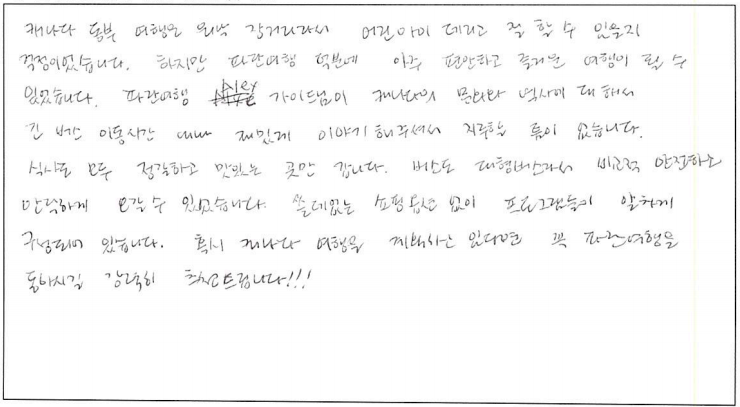 캐나다 동부 여행은 워낙 장거리라서 어린아이 데리고 잘 할 수 있을지
걱정이었습니다. 하지만 파란여행 덕분에 아주 편안하고 즐거운 여행이 될 수
있었습니다. 파란여행 Alex 가이드님이 캐나다의 문화와 역사에 대해서
긴 버스 이동시간 내내 재밌게 이야기해주셔서 지루할 틈이 없습니다.
식사도 모두 정갈하고 맛있는 곳만 갑니다. 버스도 대형버스라서 비교적 안전하고
안락하게 오갈 수 있었습니다. 쓸데없는 쇼핑옵션 없이 프로그램들이 알차게
구성되어 있습니다. 혹시 캐나다 여행을 계획하는 있다면 꼭 파란여행을
강력히 추천드립니다!!!